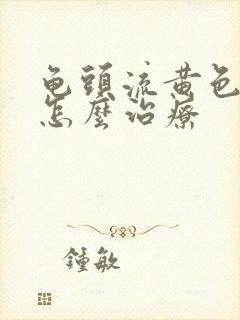 龟頭流黄色
怎麼治療
鍾敏